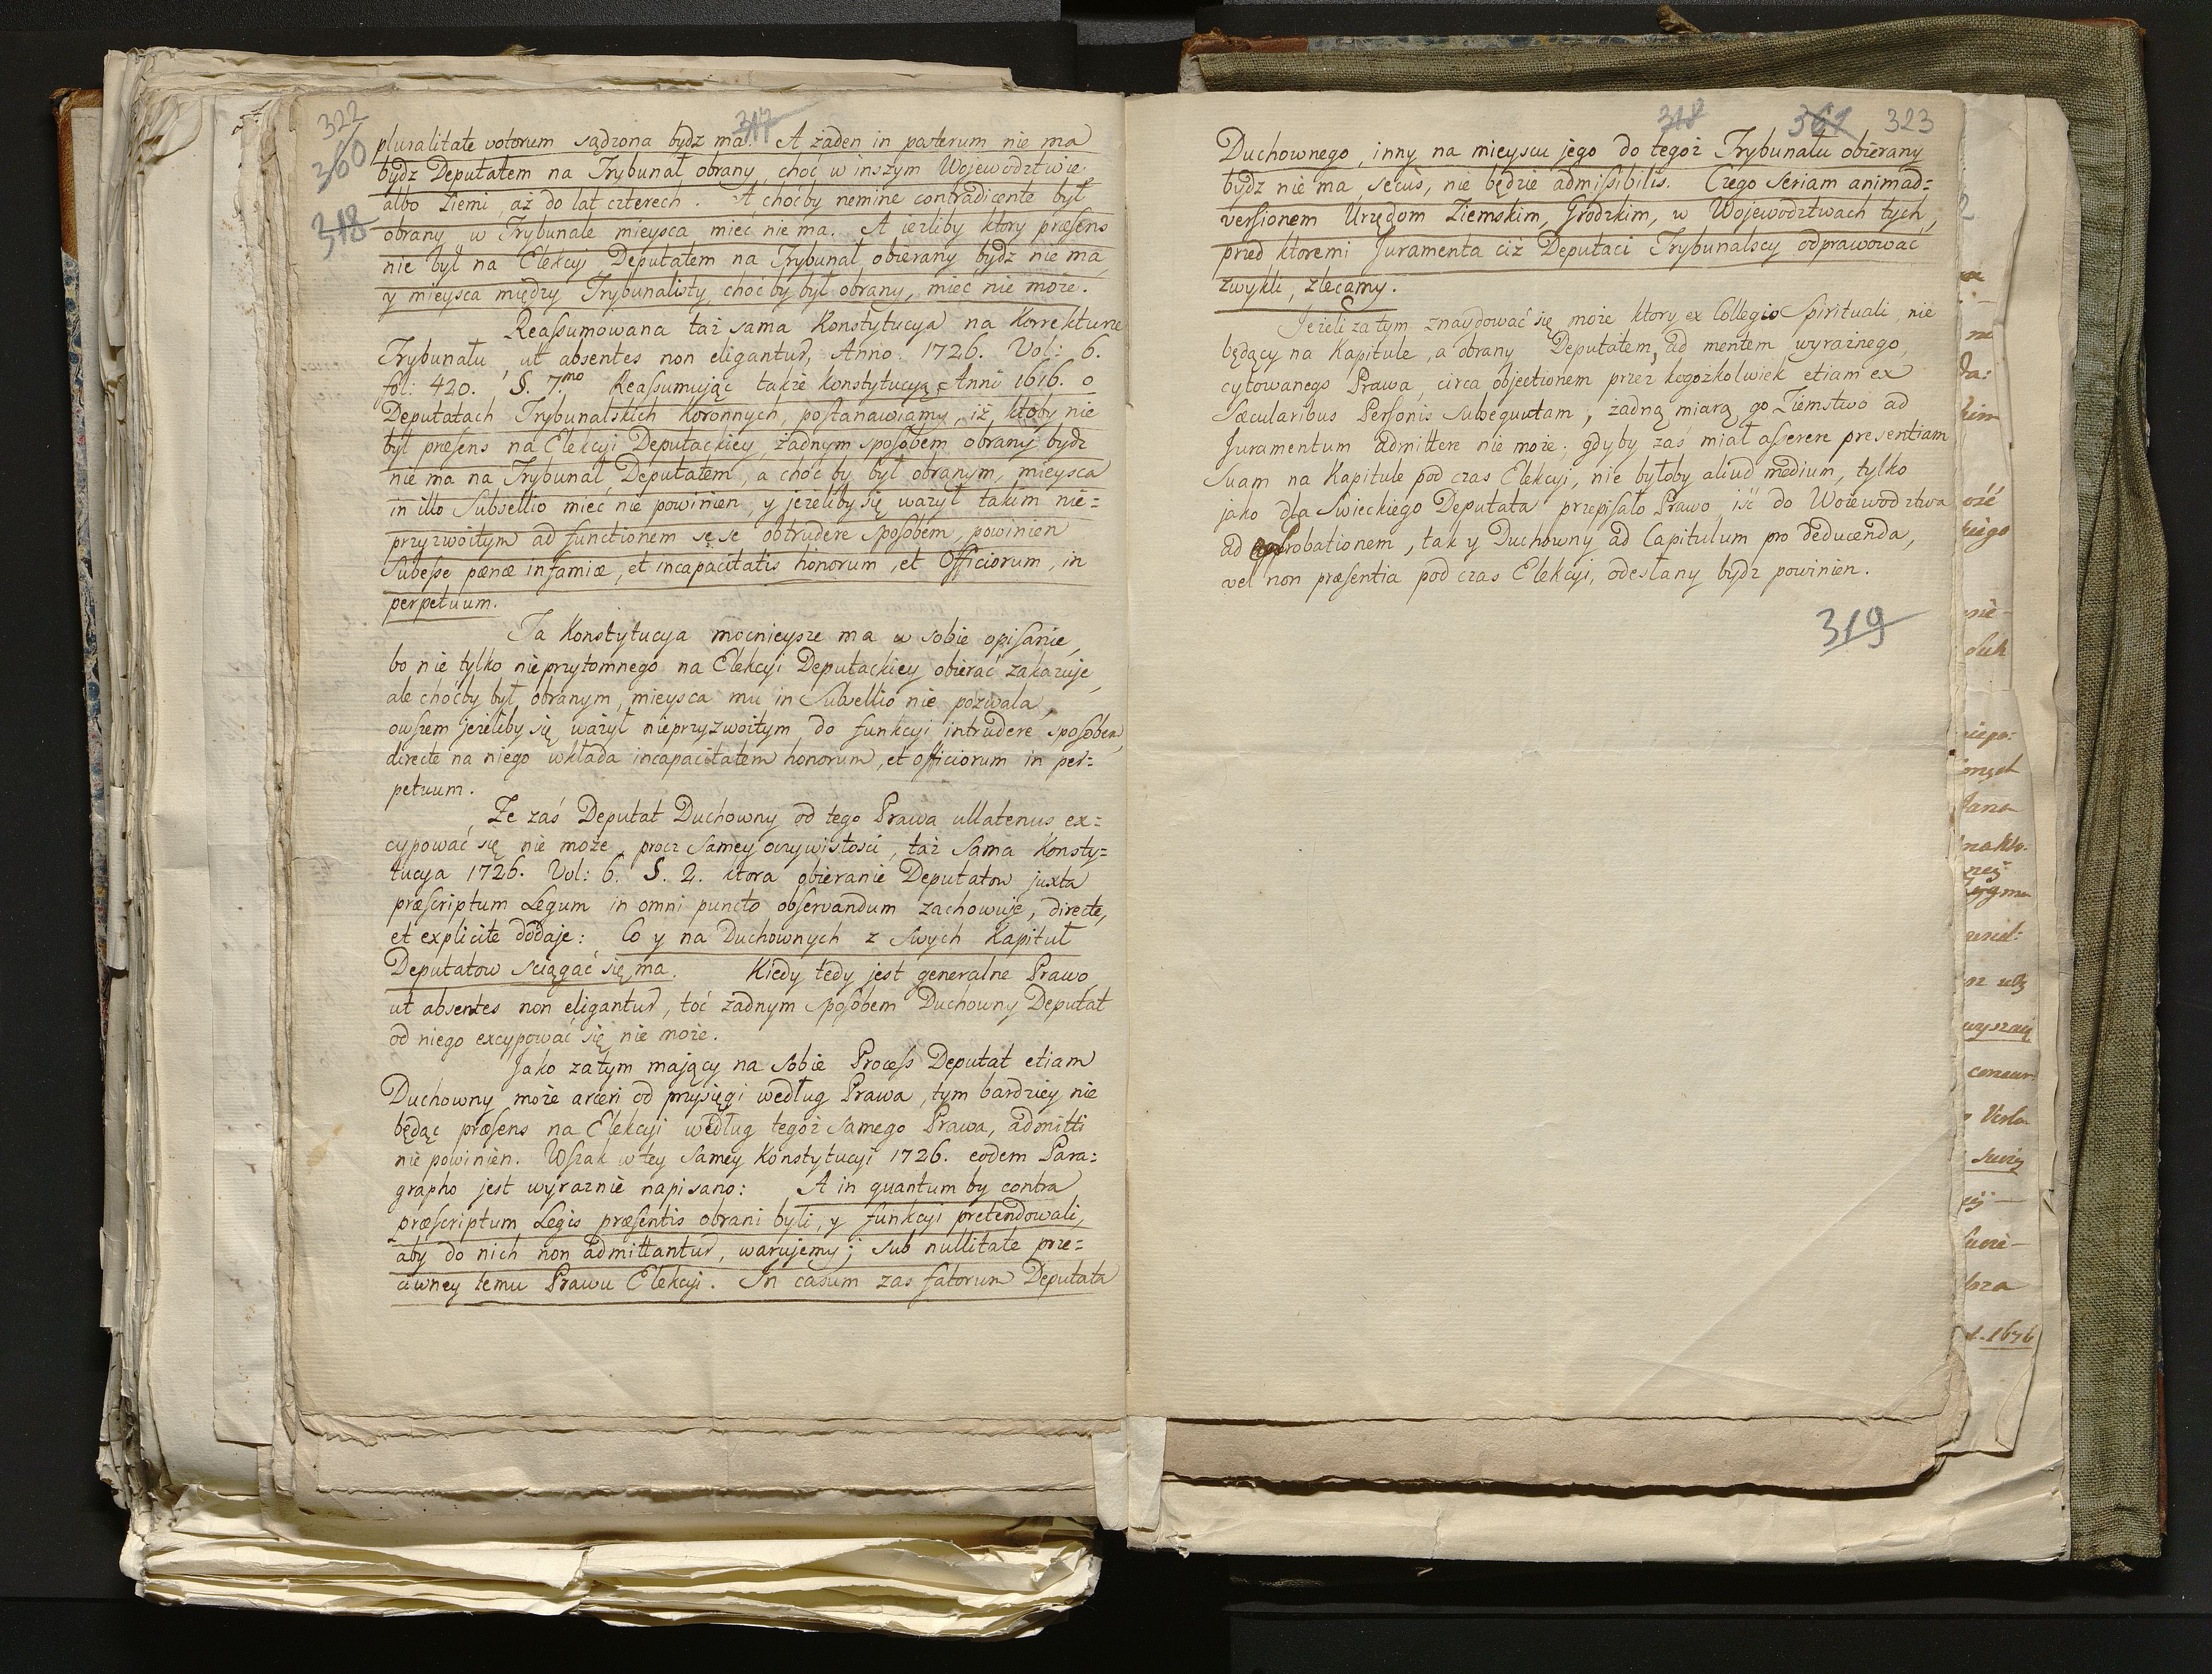 322
360
318
317
pluralitate votorum sądzona bydz ma. A żaden in paterum nie ma
bydz Deputatem na Trybunał obrany, choć w inszym Wojewodztwie
albo Ziemi, aż do lat czterech. A choćby nemine contradicente był
obrany w Trybunale mieysca mieć nie ma. A ieżliby ktory præsens
nie był na Elekcyi Deputatem na Trybunał obierany bydz nie ma,
y mieysca między Trybunalisty, choćby był obrany, mieć nie może.
Reassumowana taż sama Konstytucya na Korrekturze
Trybunału, ut absentes non eligantur, Anno. 1726. Vol: 6.
fol: 420. §. 7.mo Reassumując także Konstytucyą Anni 1616. o
Deputatach Trybunalskich Koronnych, postanawiamy, iż ktoby nie
był præsens na Elekcyi Deputackiey, żadnym sposobem obrany bydz
nie ma na Trybunał Deputatem, a choć by był obranym, mieysca
in illo Subsellio mieć nie powinien, y jeżeliby się ważył takim nie=
przyzwoitym ad functionem se se obtrudere sposobem, powinien
Subesse pœnæ infamiæ, et incapacitatis honorum, et Officiorum, in
perpetuum.
Ta Konstytucya mocnieysze ma w sobie opisanie,
bo nie tylko nieprzytomnego na Elekcyi Deputackiey obierać zakazuje,
ale choćby był obranym, mieysca mu in Subsellio nie pozwala,
owszem jeżeliby się ważył nieprzyzwoitym do funkcyi intrudere sposobem,
directe na niego wkłada incapacitatem honorum, et officiorum in per=
petuum.
Że zaś Deputat Duchowny od tego Prawa ullatenus ex=
cypować się nie może, procz samey oczywistości, taż sama Konsty=
tucya 1726. Vol: 6. §. 2. ktora obieranie Deputatow juxta
præscriptum Legum in omni puncto observandum zachowuje, directe,
et explicite dodaje: Co y na Duchownych z swych Kapituł
Deputatow sciągać się ma. Kiedy tedy jest generalne Prawo
ut absentes non eligantur, toć żadnym sposobem Duchowny Deputat
od niego excypować się nie może.
Jako zatym mający na sobie Process Deputat etiam
Duchowny może arceri od przysięgi według Prawa, tym bardziey nie
będąc præsens na Elekcyi według tegoż samego Prawa, admitti
nie powinien. Wszak w tey samey Konstytucyi 1726. eodem Para=
grapho jest wyraznie napisano: A in quantum by contra
præscriptum Legis præsentis obrani byli, y funkcyi pretendowali,
aby do nich non admittantur, warujemy; sub nullitate prze=
ciwney temu Prawu Elekcyi. In casum zas fatorum Deputata
318
361
323
Duchownego, inny na mieyscu jego do tegoż Trybunału obierany
bydz nie ma secus, nie będzie admissibilis. Czego seriam animad=
versionem Urzędom Ziemskim, Grodzkim, w Wojewodztwach tych,
przed ktoremi Juramenta ciż Deputaci Trybunalscy odprawować
zwykli, zlecamy.
Jeżeli zatym znaydować się może ktory ex Collegio Spirituali, nie
będący na Kapitule, a obrany Deputatem, ad mentem wyraznego,
cytowanego Prawa, circa objectionem przez kogożkolwiek etiam ex
Sæcularibus Personis subsequutam, żadną miarą go Ziemstwo ad
Juramentum admittere nie może; gdyby zaś miał asserere presentiam
Suam na Kapitule pod czas Elekcyi, nie byłoby aliud medium, tylko
jako dla Swieckiego Deputata przepisało Prawo iść do Woiewodztwa
ad approbationem, tak y Duchowny ad Capitulum pro deducenda,
vel non præsentia pod czas Elekcyi, odesłany bydz powinien.
319